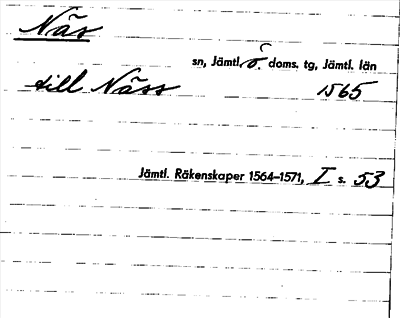 Näs
sn, Jämtl. ö. doms. tg, Jämtl. län
till Näss 1565
Jämtl. Räkenskaper 1564–1571, I s. 53